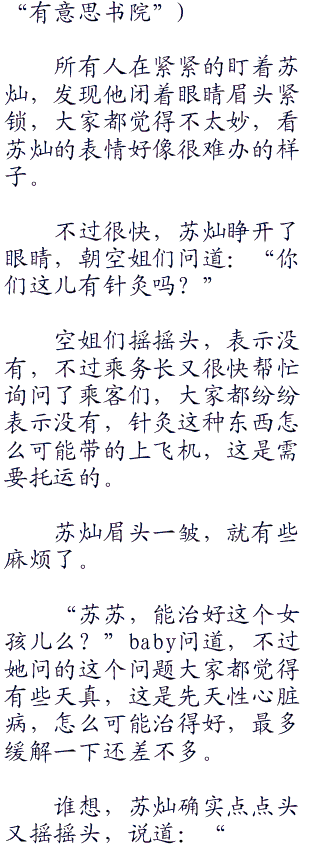 “有意思书院”）
所有人在紧紧的盯着苏
灿，发现他闭着眼睛眉头紧
锁，大家都觉得不太妙，看
苏灿的表情好像很难办的样
子。
不过很快，苏灿睁开了
眼睛，朝空姐们问道：“你
们这儿有针灸吗？”
空姐们摇摇头，表示没
有，不过乘务长又很快帮忙
询问了乘客们，大家都纷纷
表示没有，针灸这种东西怎
么可能带的上飞机，这是需
要托运的。
苏灿眉头一皱，就有些
麻烦了。
“苏苏，能治好这个女
孩儿么？”baby问道，不过
她问的这个问题大家都觉得
有些天真，这是先天性心脏
病，怎么可能治得好，最多
缓解一下还差不多。
谁想，苏灿确实点点头
又摇摇头，说道：“